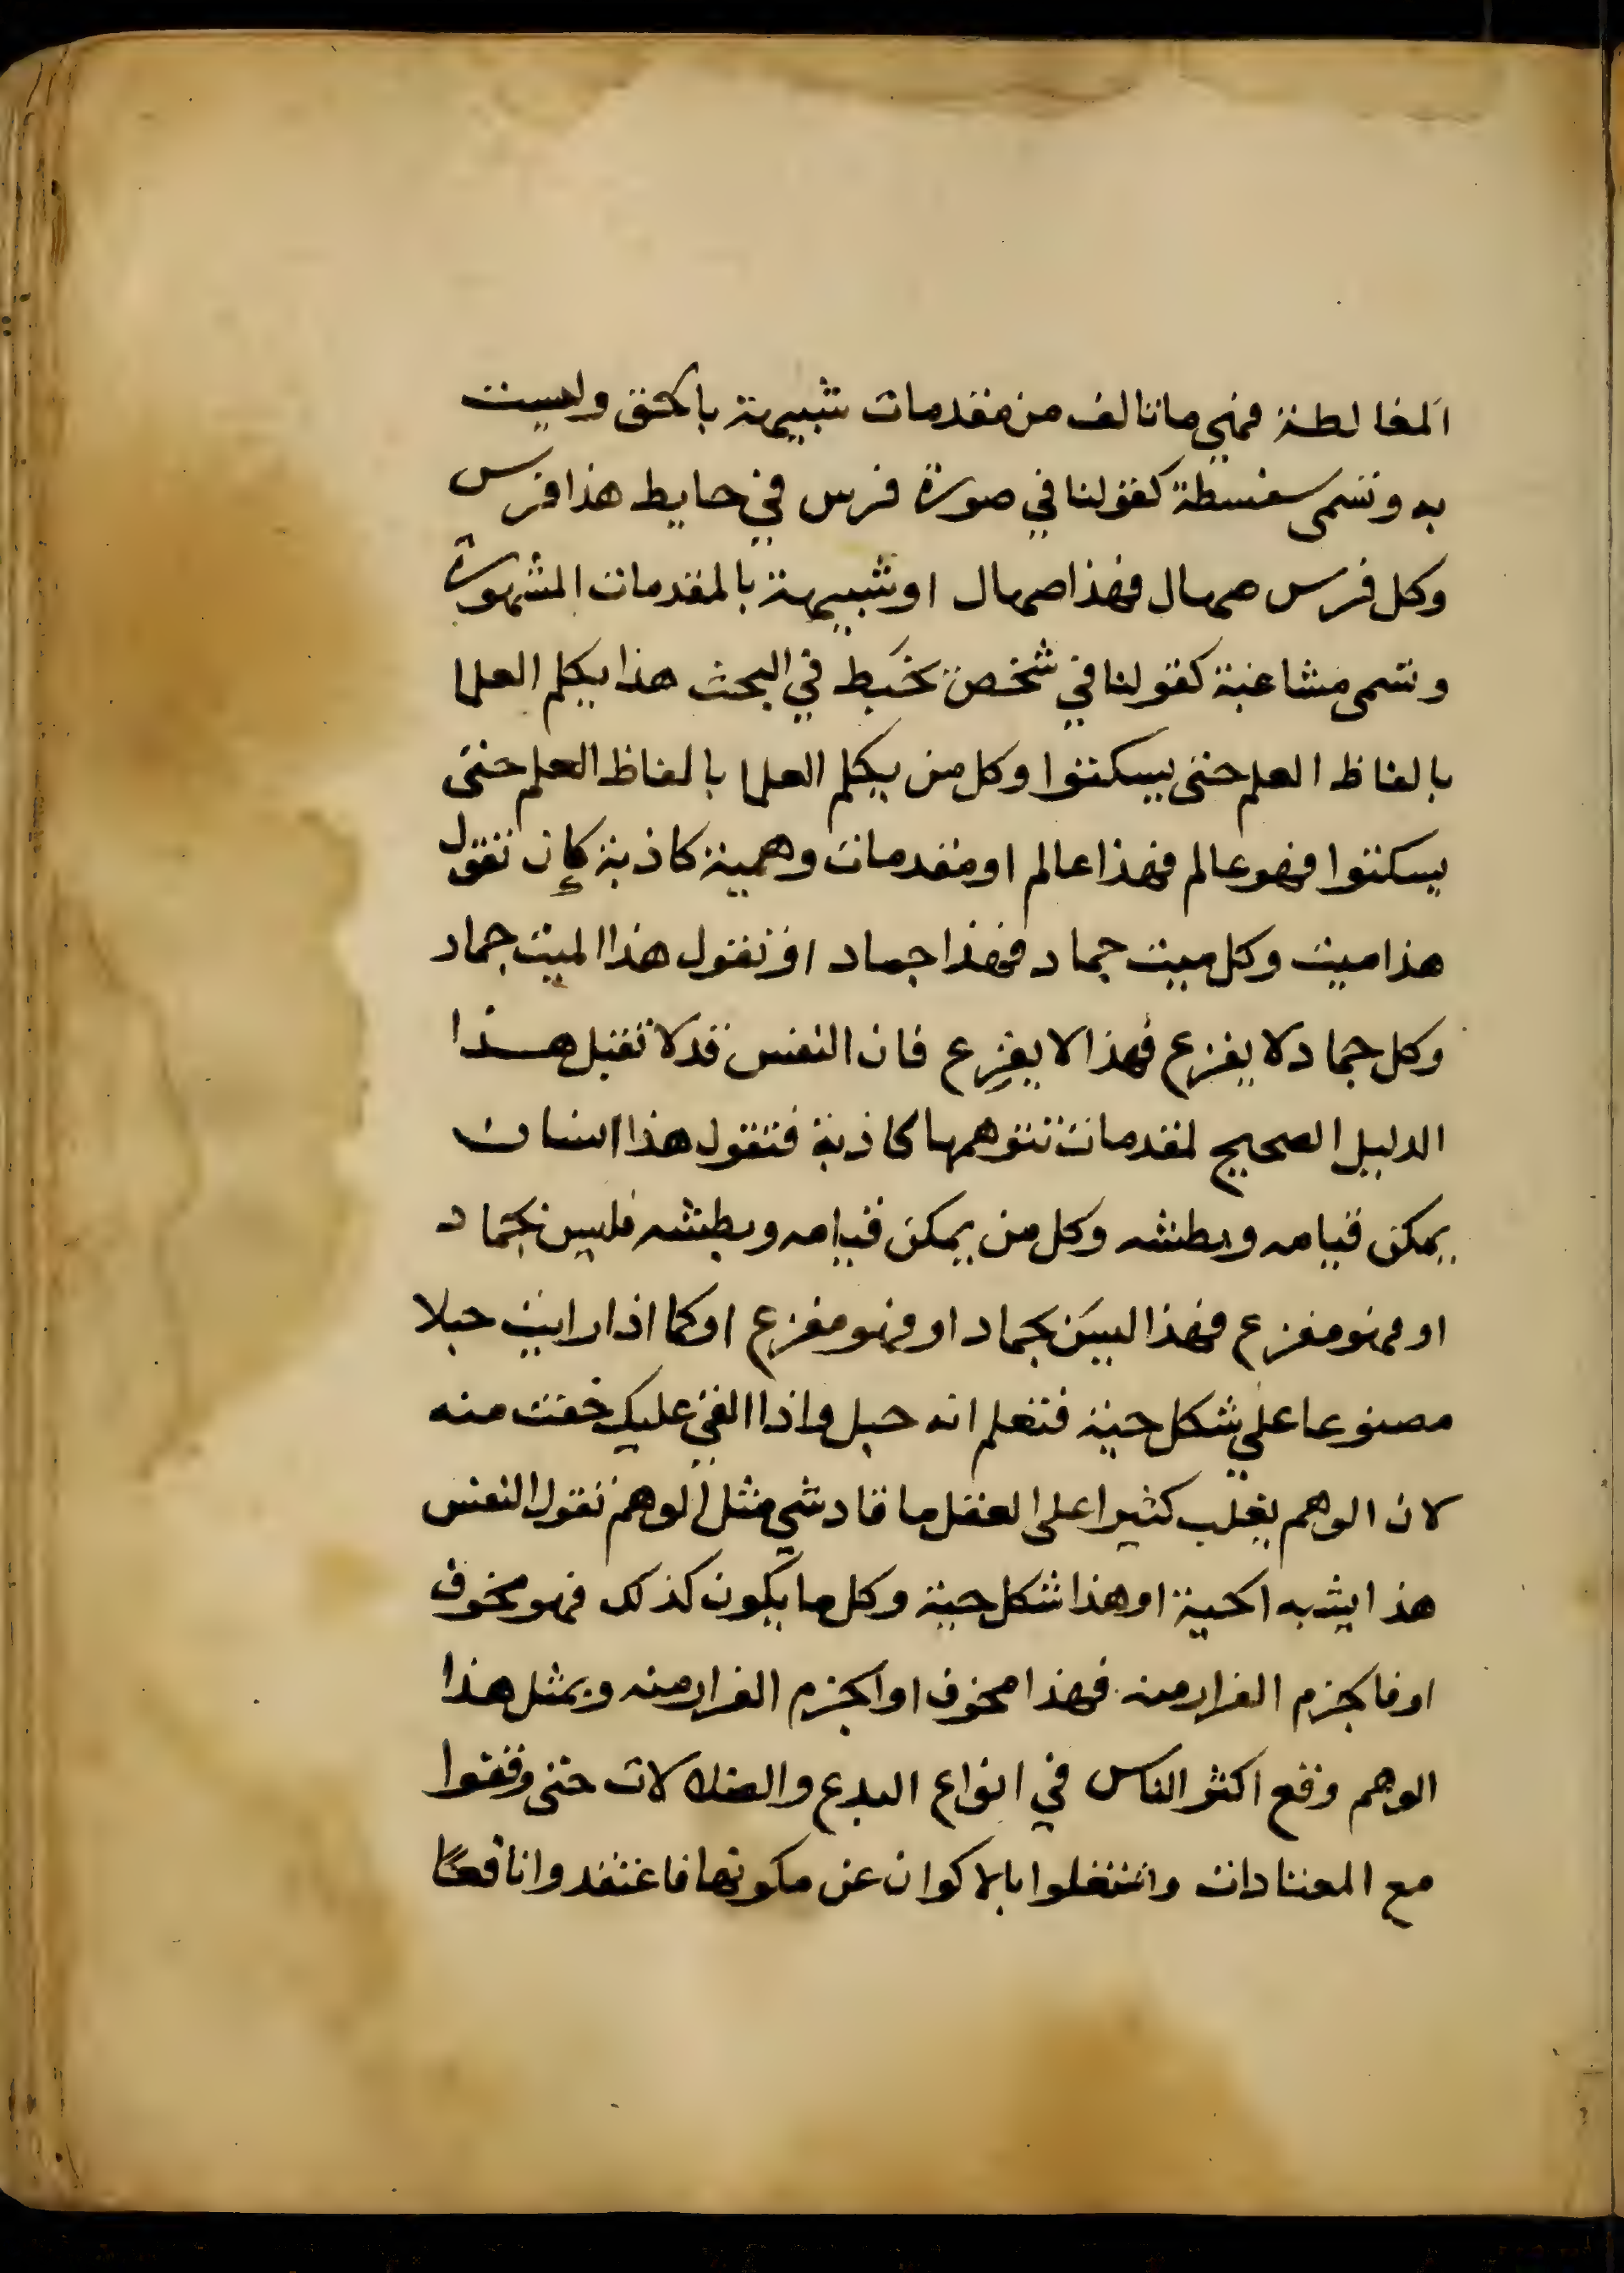 المغالطة فهي ما تتالف من مقدمات شبيهة بالحق وليست
به وتسمى سفسطة كقولنا في صورة فرس في حايط هذا فرس
وكل فرس صهال فهذا صهال او شبيهة بالمقدمات المشهورة
وتسمى مشاغبة كقولنا في شخص تخبط في البحث هذا يكلم العلما
بالفاظ العلم حتى يسكتوا وكل من يكلم العلما بالفاظ العلم حتى
يسكتوا فهو عالم فهذا عالم او مقدمات وهمية كاذبة كإن تقول
هذا ميت وكل ميت جماد فهذا جماد او تقول هذا الميت جماد
وكل جماد لا يفزع فهذا لا يفزع فان النفس قد لا تقبل هذا
الدليل الصحيح لمقدمات تتوهمها كاذبة فتقول هذا انسان
يمكن قيامه وبطشه وكل من يمكن قيامه وبطشه فليس بجماد
او فهو مفزع فهذا ليس بجماد او فهو مفزع او كما اذا رايت حبلا
مصنوعا على شكل حية فتعلم انه حبل واذا القي عليك خفت منه
لان الوهم يغلب كثيرا على العقل ما قاد شي مثل الوهم تقول النفس
هذا يشبه الحية او هذا شكل حية وكل ما يكون كذلك فهو مخوف
او فالحزم الفرار منه فهذا مخوف او الحزم الفرار منه وبمثل هذا
الوهم وقع اكثر الناس في انواع البدع والضلالات حتى وقفوا
مع المعتادات واشتغلوا بالاكوان عن مكونها فاعتقدوا نافعا